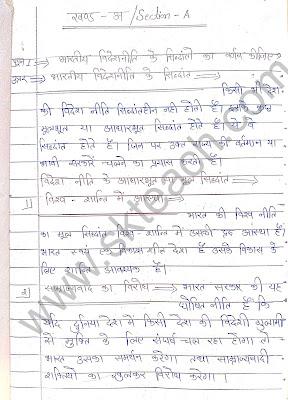 खण्ड - अ / Section - A
प्रश्न 1 ⇒ भारतीय विदेशनीति के सिद्धांतों का वर्णन कीजिए
उत्तर ⇒ भारतीय विदेशनीति के सिद्धांत ⇒
किसी भी देश
की विदेश नीति सिद्धांतहीन नहीं होती है। इसके कुछ
मूलभूत या आधारभूत सिद्धांत होते हैं। ये वे
सिद्धांत होते हैं। जिन पर उक्त राज्य की वर्तमान या
भावी सरकारें चलने का प्रयास करती हैं।
विदेश नीति के आधारभूत या मूल सिद्धांत ⇒
1] विश्व - शान्ति में आस्था ⇒
भारत की विश्व नीति
का मूल सिद्धांत विश्व - शान्ति में उसकी दृढ़ आस्था है।
भारत स्वयं एक विकासशील देश है उसके विकास के
लिए शान्ति आवश्यक है।
2] साम्राज्यवाद का विरोध ⇒ भारत सरकार की यह
घोषित नीति है कि
यदि दुनिया देश में किसी देश की विदेशी गुलामी
से मुक्ति के लिए संघर्ष चल रहा होगा तो
भारत उसका समर्थन करेगा। तथा साम्राज्यवादी
शक्तियों का खुलकर विरोध करेगा।